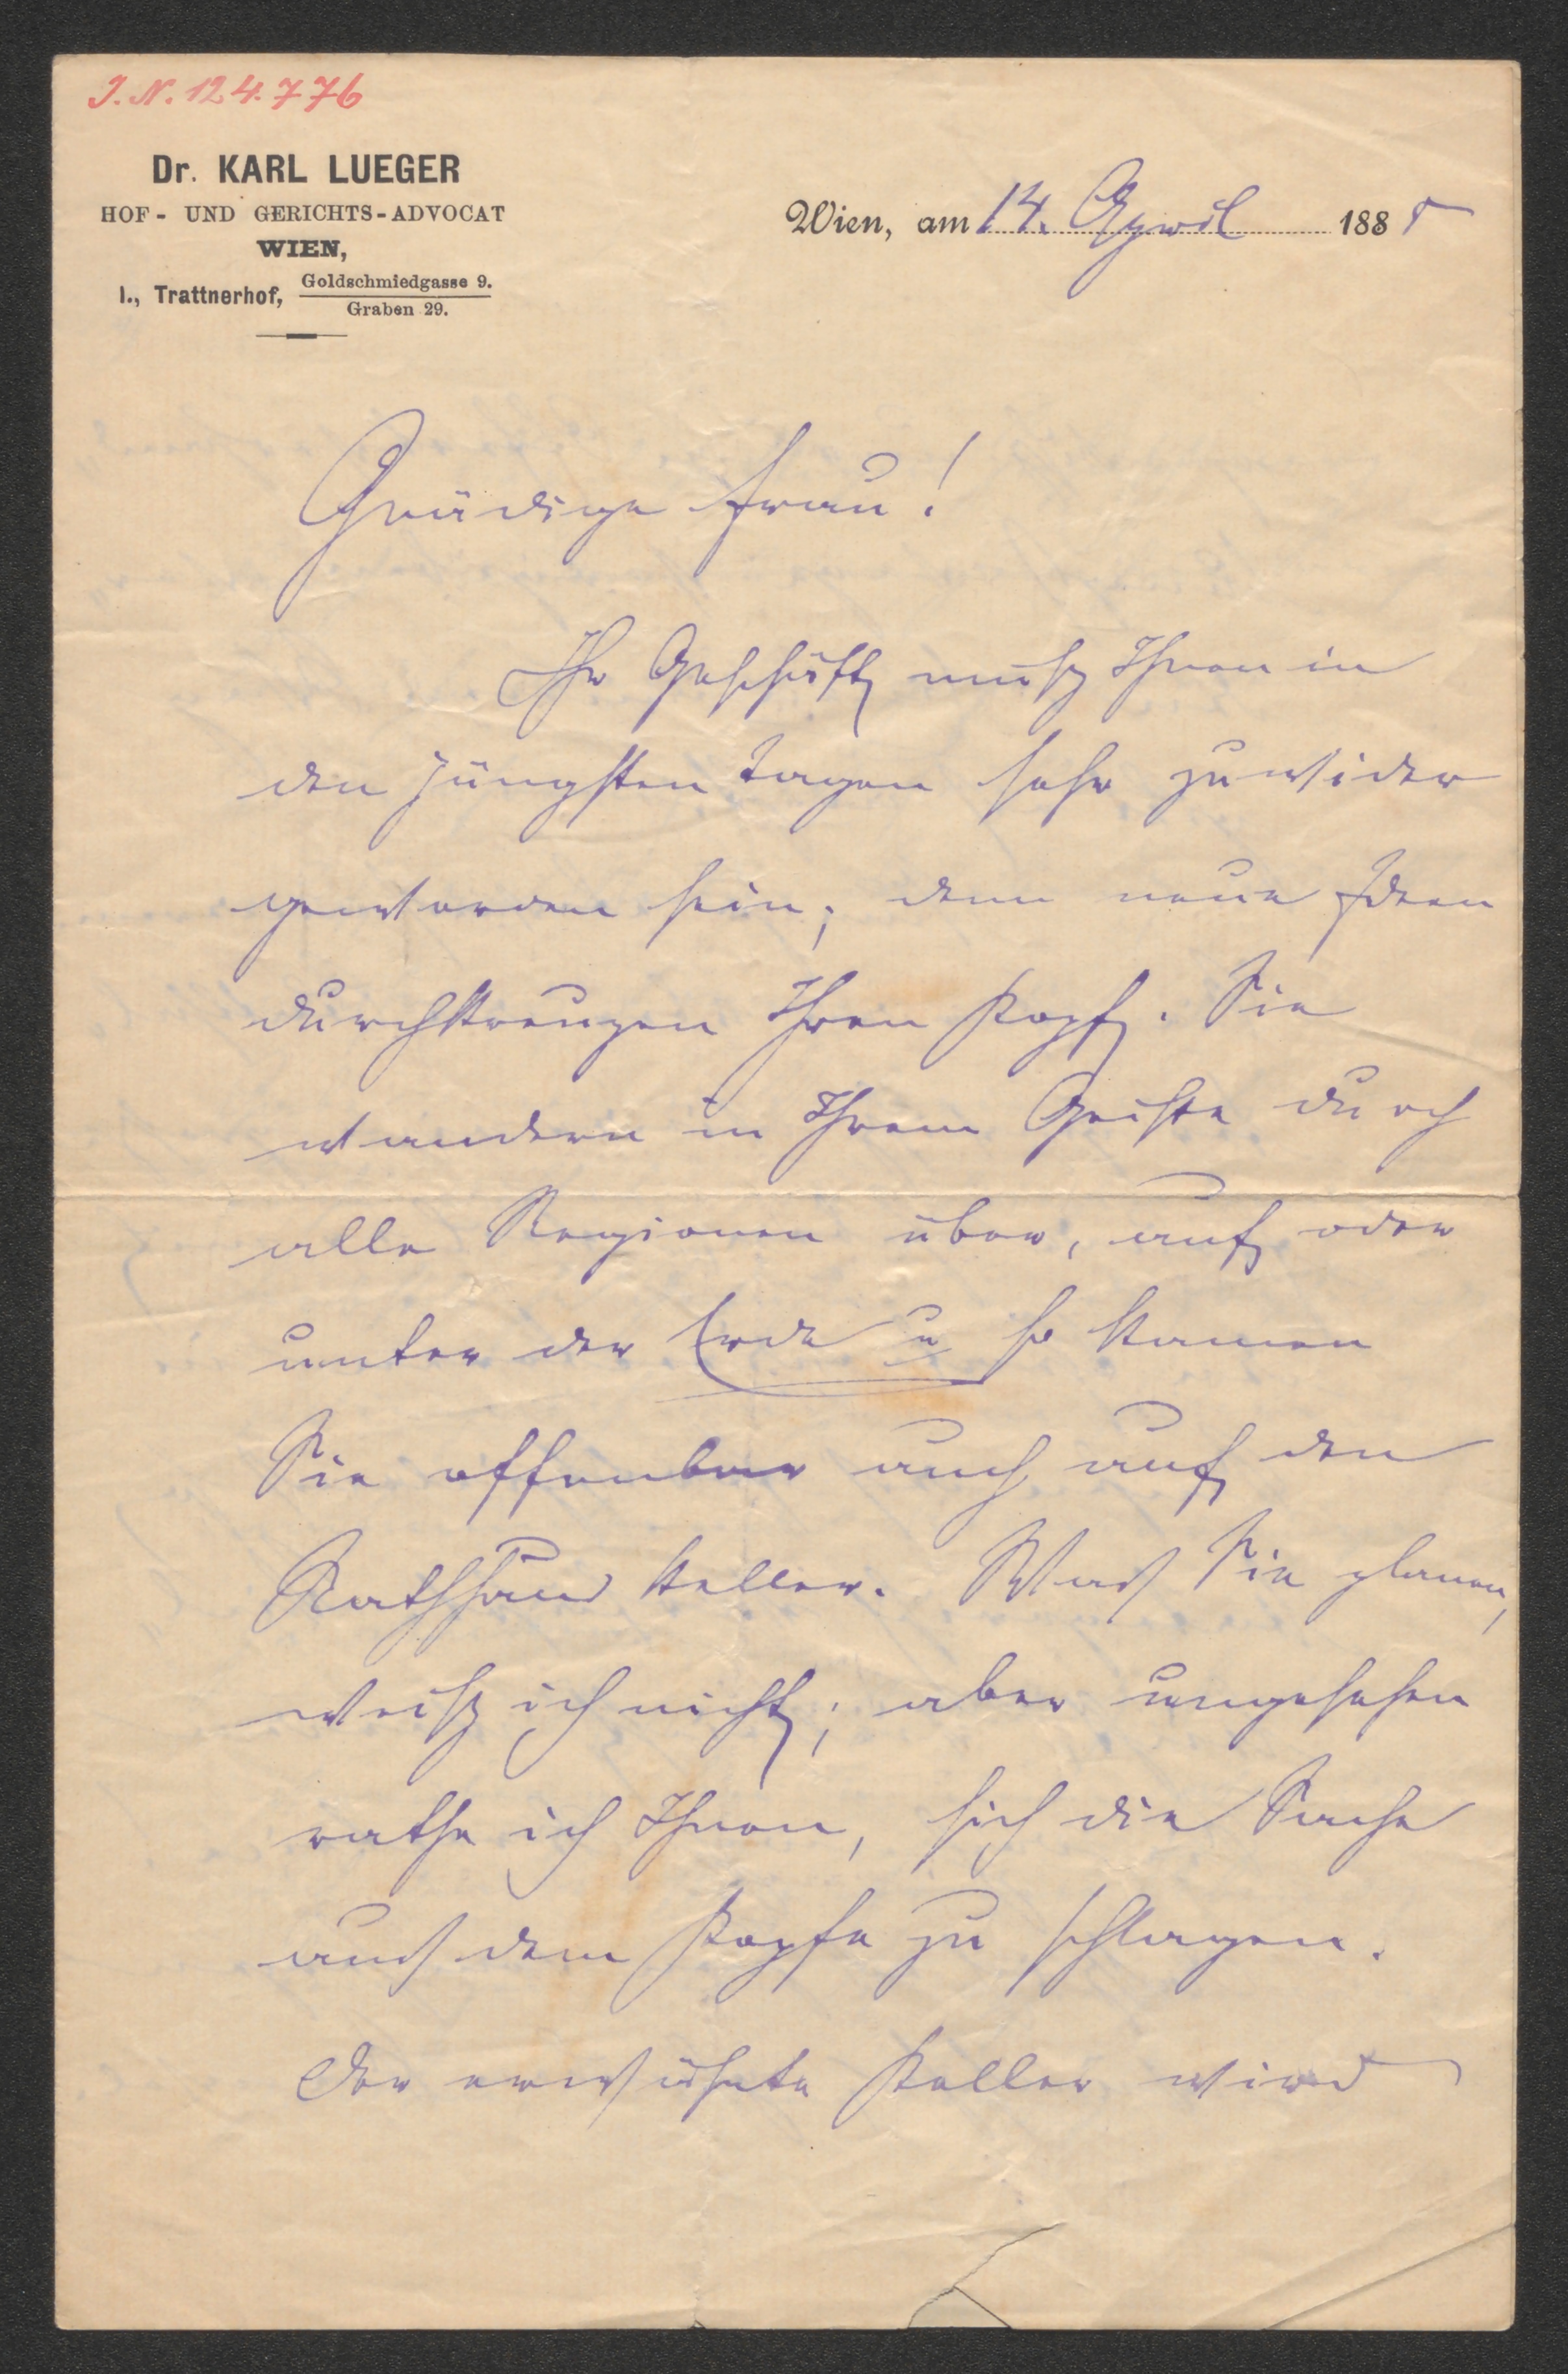 J. N. 124.776
Dr. KARL LUEGER
HOF- UND GERICHTS-ADVOCAT
WIEN,
I., Trattnerhof, Goldschmiedgasse 9.
Graben 29.
Wien, am 14. April 1885
Gnädige Frau!
Ihr Geschäft muß Ihnen in
den jüngsten Tagen sehr zuwider
geworden sein; denn neue Ideen
durchkreuzen Ihren Kopf. Sie
wandern in Ihrem Geiste durch
alle Regionen über, auf oder
unter der Erde u so kamen
Sie offenbar auch auf den
Rathhaus keller. Was Sie planen,
weiß ich nicht; aber ungesehen
rathe ich Ihnen, sich die Sache
aus dem Kopfe zu schlagen.
Der erwähnte Keller wird